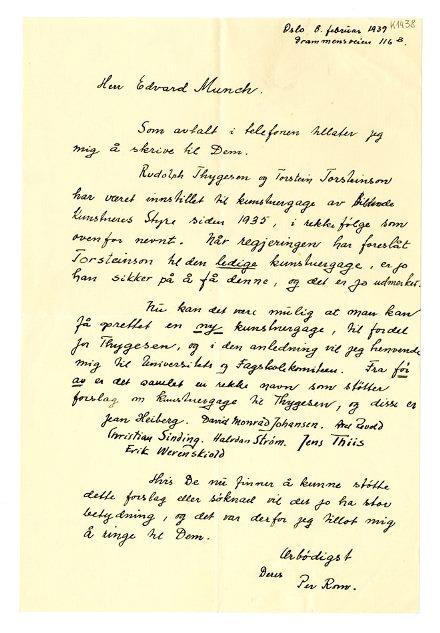 Oslo 8. februar 1939
K1438
Drammensveien 116 B.
Herr Edvard Munch.
Som avtalt i telefonen tillater jeg
mig å skrive til Dem.
Rudolph Thygesen og Torstein Torsteinson
har været innstillet til kunstnergage av bildende
kunstneres Styre siden 1935, i rekkefølge som
ovenfor nevnt. Når regjeringen har foreslåt
Torsteinson til den ledige kunstnergage, er jo
han sikker på å få denne, og det er jo udmerket.
Nu kan det være mulig at man kan
få oprettet en ny kunstnergage, til fordel
for Thygesen, og i den anledning vil jeg henvende
mig til Universitets og Fagskolikomiteen. Fra før
av er det samlet en rekke navn som støtter
forslag om kunstnergage til Thygesen, og disse er
Jean Heiberg. David Monrad Johansen. Axel Revold
Christian Sinding. Halvdan Strøm. Jens Thiis
Erik Werenskiold
Hvis De nu finner å kunne støtte
dette forslag eller søknad vil det jo ha stor
betydning, og det var derfor jeg tillot mig
å ringe til Dem.
Ærbødigst
Deres
Per Rom.